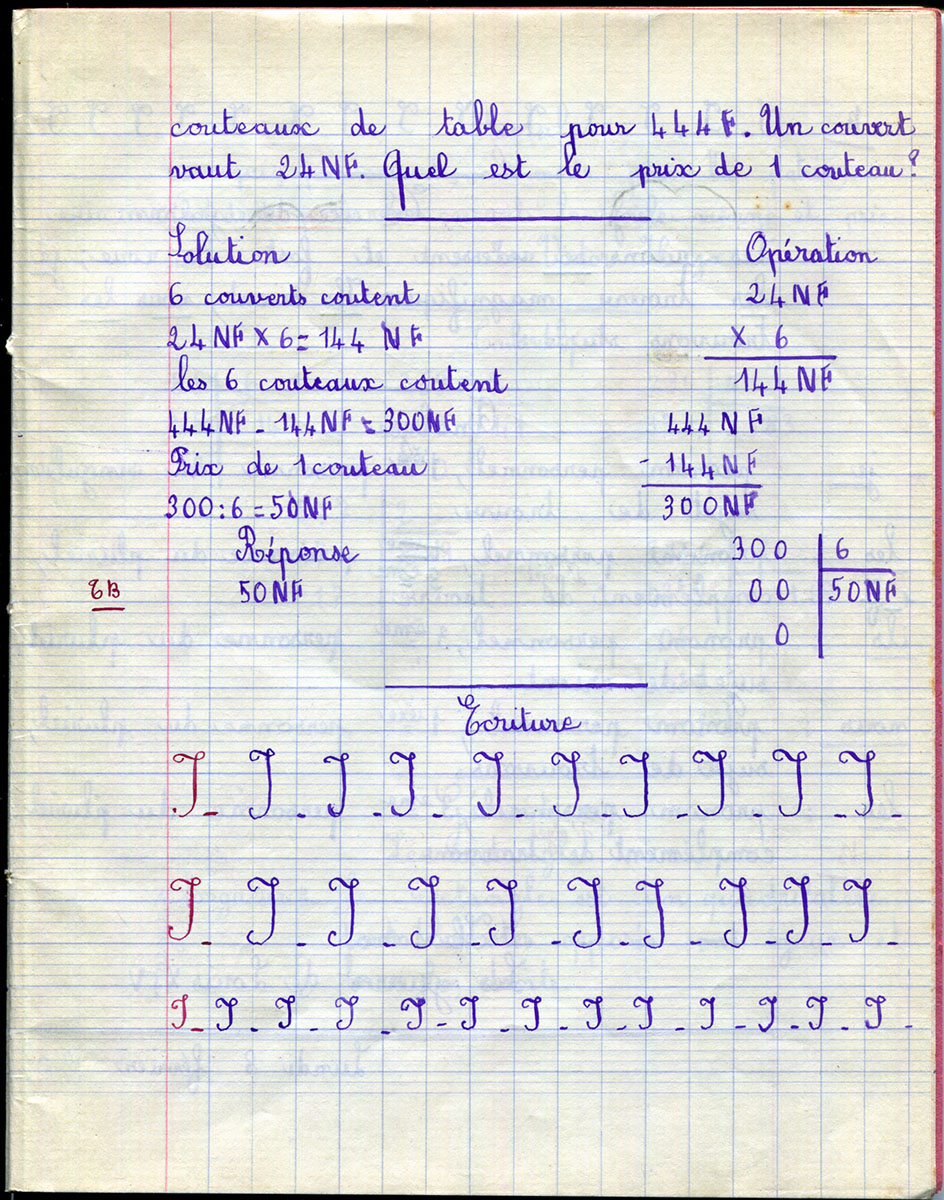 couteaux de table pour 444 F. Un couvert
vaut 24 NF. Quel est le prix de 1 couteau?
Solution
Opération
6 couverts coutent
24 NF
24 NF x 6 = 144 NF
x 6
les 6 couteaux coutent
144 NF
444 NF - 144 NF = 300 NF
444 NF
Prix de 1 couteau
- 144 NF
300 : 6 = 50 NF
300 NF
Réponse
300 6
TB
50 NF
00 50 NF
0
Ecriture
I - I - I - I - I - I - I - I - I - I -
I - I - I - I - I - I - I - I - I - I -
I - I - I - I - I - I - I - I - I - I - I - I - I -